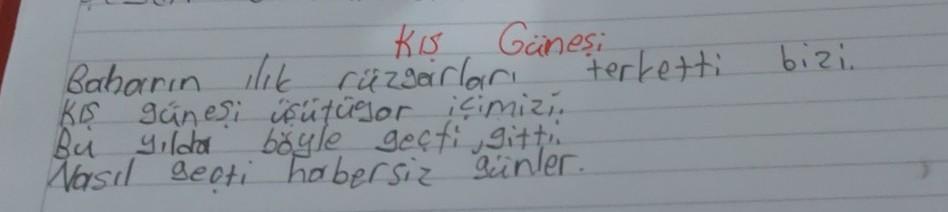 Kış Güneşi
Baharın ılık rüzgarları terketti bizi.
Kış güneşi üşütüyor içimizi.
Bu yılda böyle geçti, gitti.
Nasıl geçti habersiz günler.